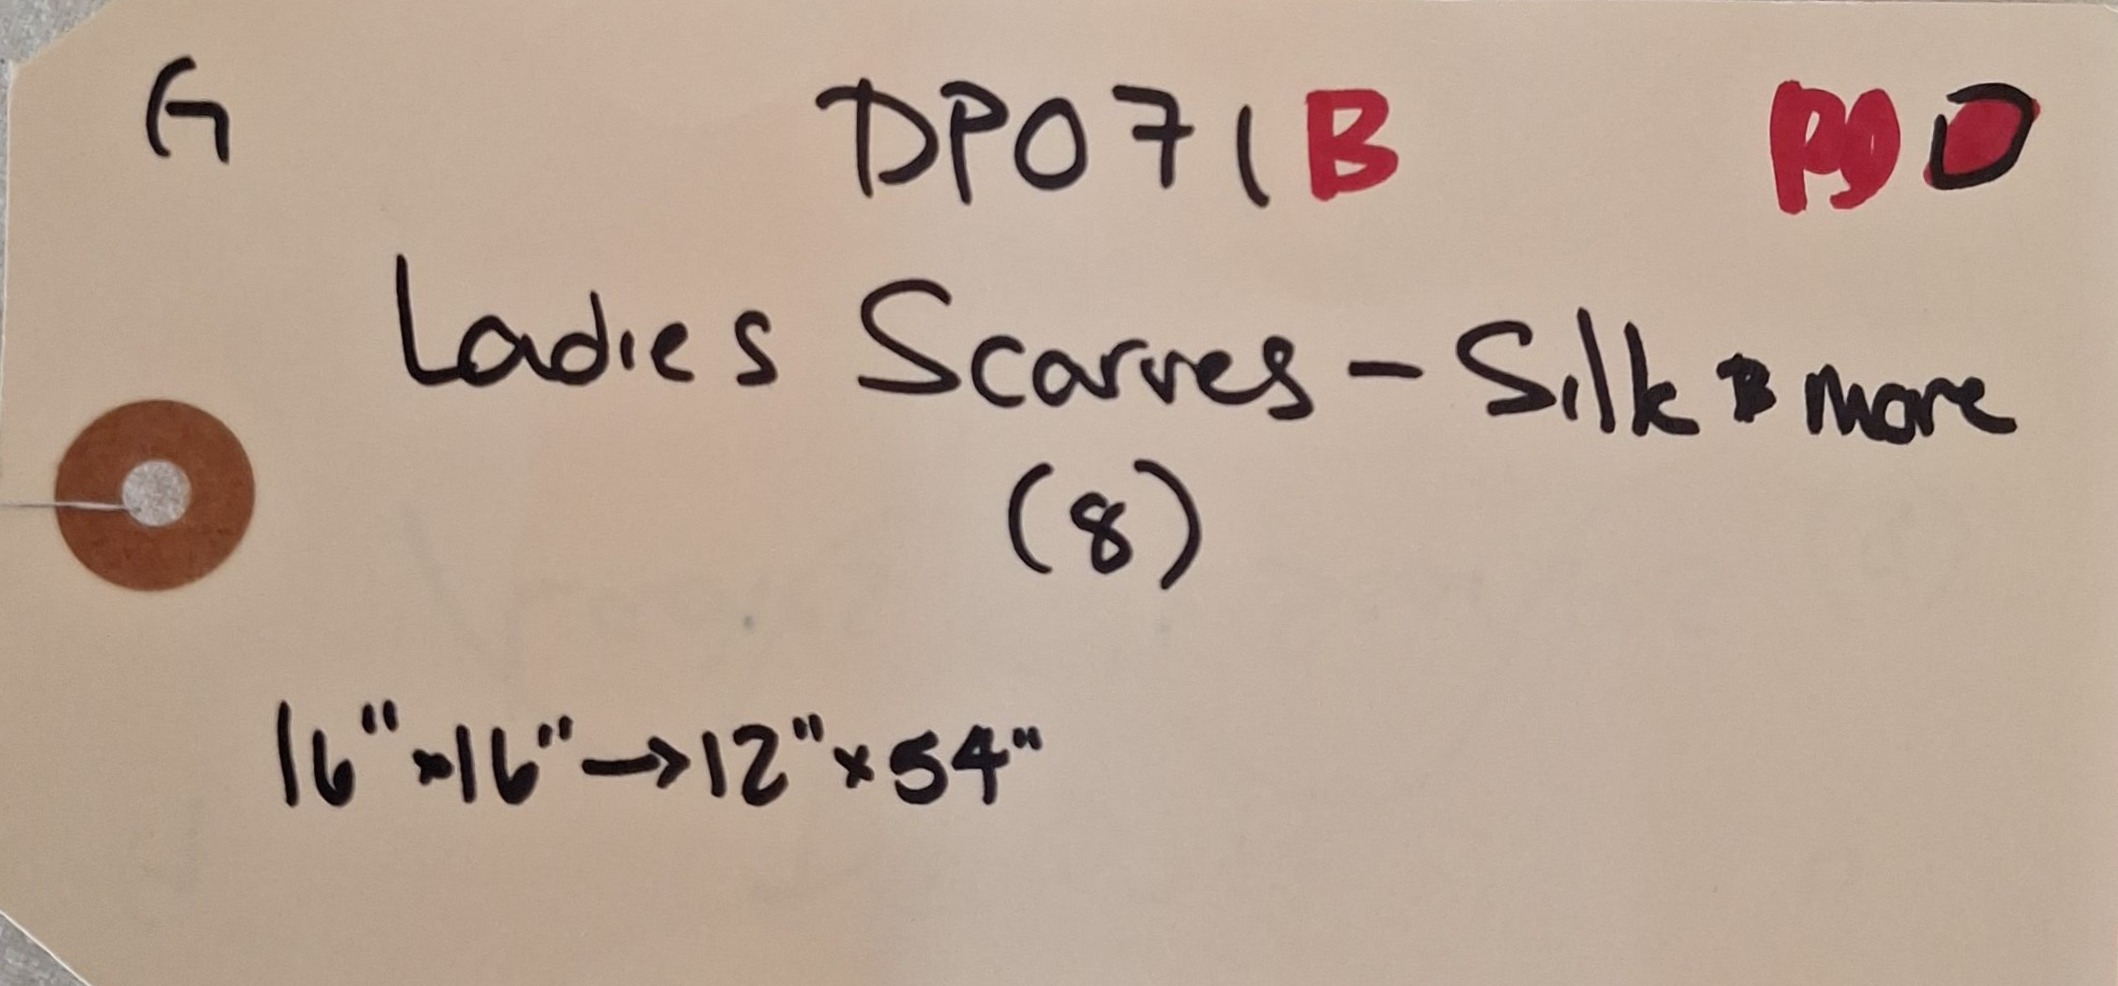 G DP071B
Ladies Scarves - Silk & more
(8)
16" x 16" → 12" x 54"